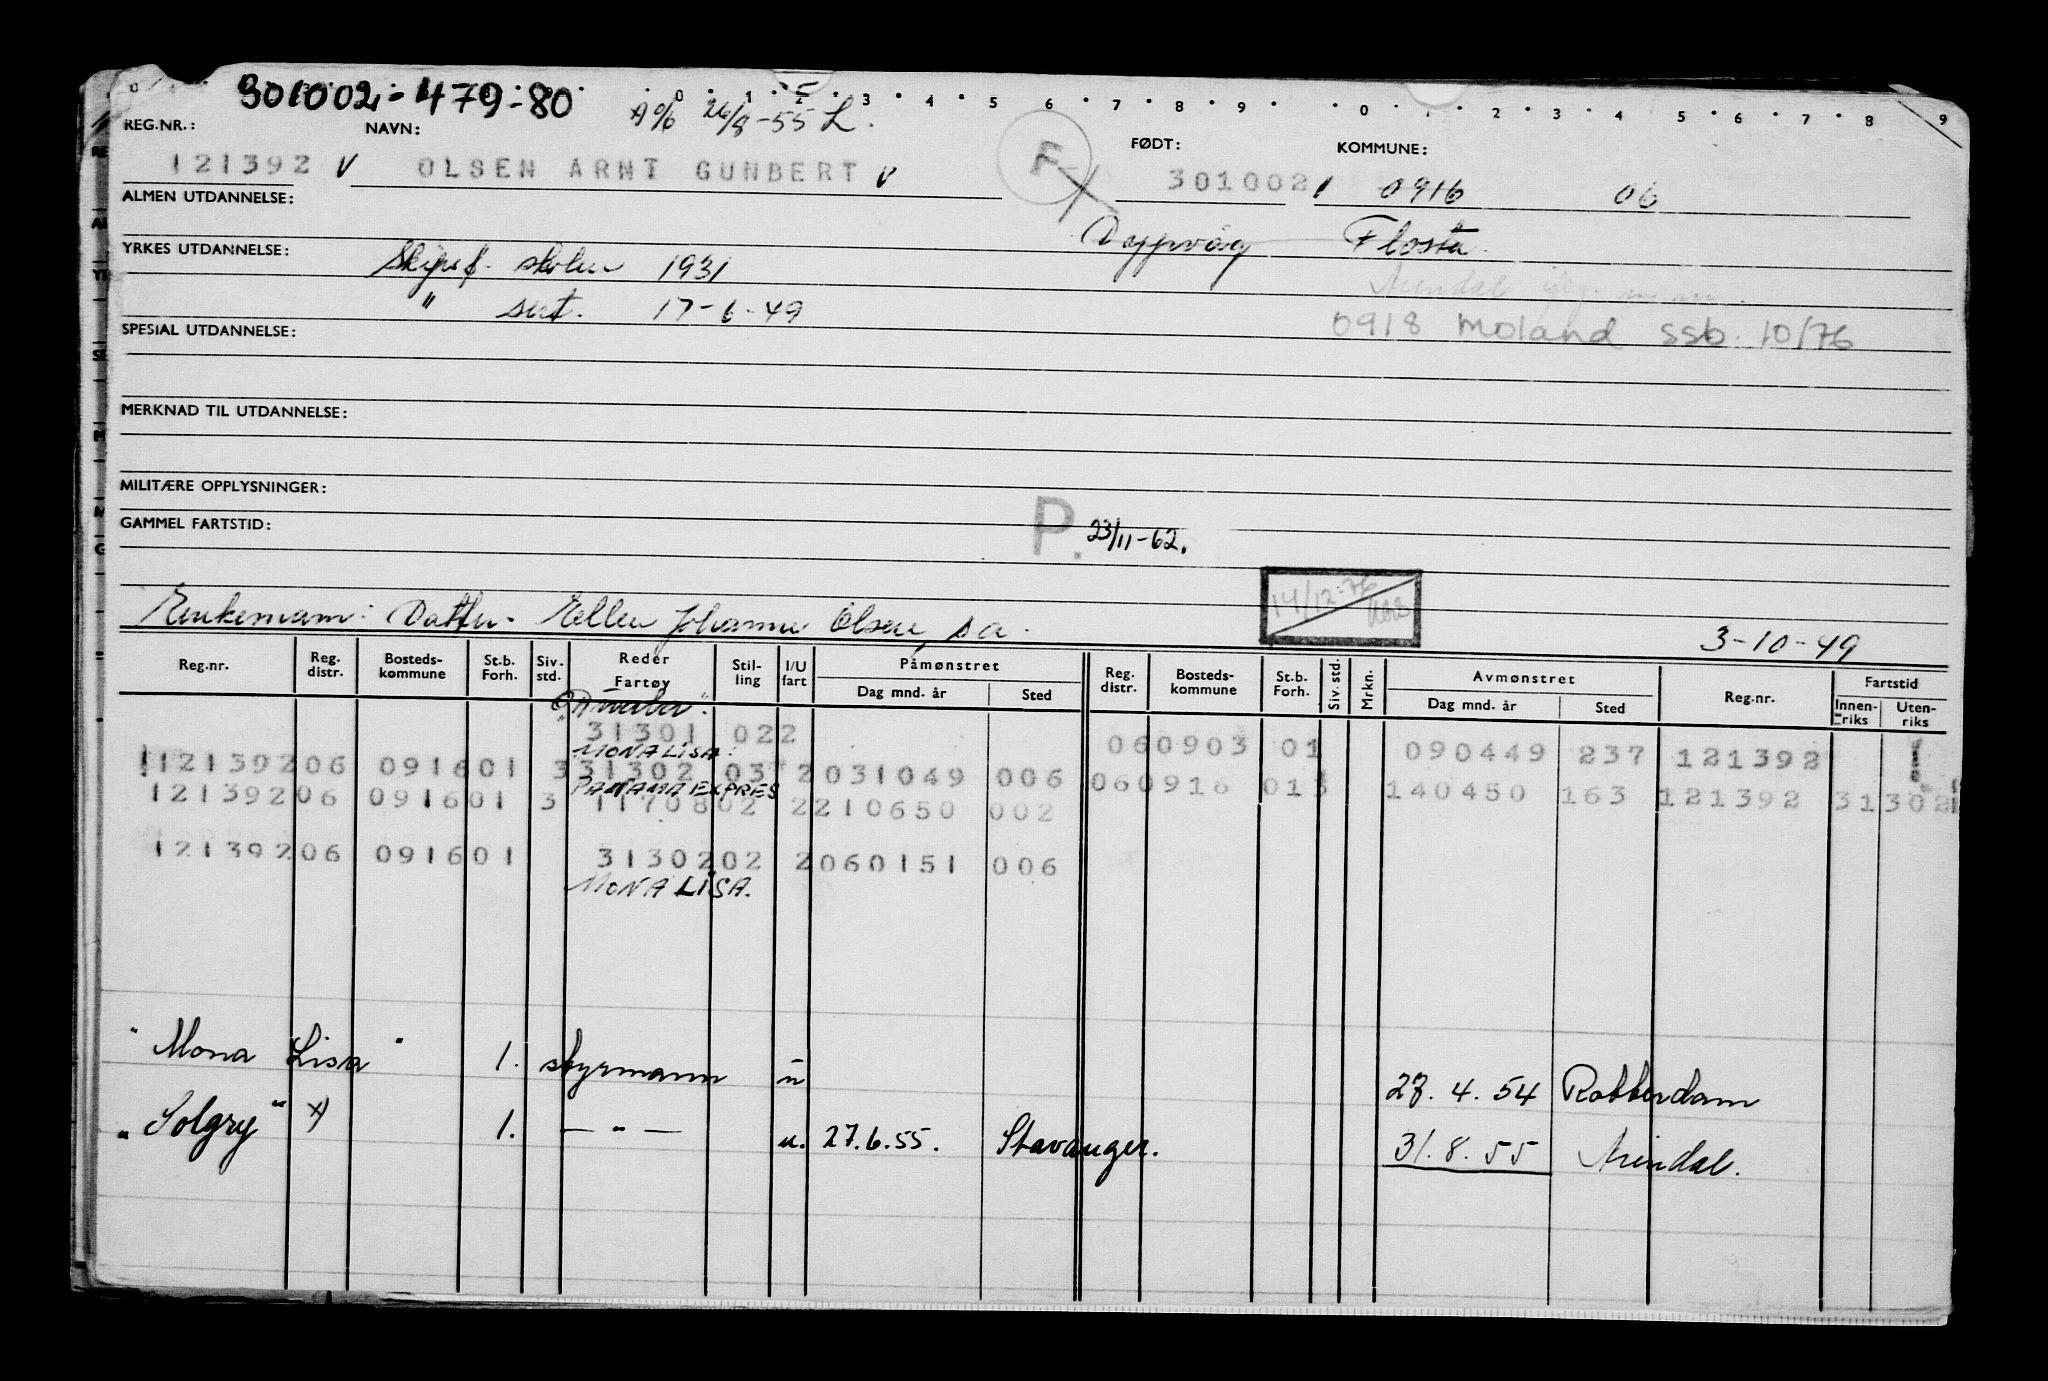 0 1 2 3 4 5 6 7 8 9 0 1 2 3 4 5 6 7 8 9
301002-479-80
26/8-55 L.
REG.NR.: NAVN: FØDT: KOMMUNE:
121392 V OLSEN ARNT GUNBERT V F 301002 0916 06
ALMEN UTDANNELSE:
Dypvåg Flosta
YRKES UTDANNELSE: Skipsf. skolen 1931
Arendal
" sert. 17-6-49
0918 Moland ssb. 10/76
SPESIAL UTDANNELSE:
MERKNAD TIL UTDANNELSE:
MILITÆRE OPPLYSNINGER:
GAMMEL FARTSTID: P. 23/11-62.
14/12-76
Enkemann: Datter Ellen Johanne Olsen, s a.
3-10-49
Reg.nr. Reg. distr. Bosteds-kommune St.b. Forh. Siv. std. Reder Fartøy Stil-ling I/U fart Påmønstret Dag mnd. år Sted Reg. distr. Bosteds-kommune St.b. Forh. Siv. std. Mrkn. Avmønstret Dag mnd. år Sted Reg.nr. Fartstid Innen-riks Uten-riks
31301 022 060903 01 090449 237 121392
"MONA LISA"
121392 06 0916 01 3 31302 03 2 031049 006 060916 013 140450 163 121392 31302
PANAMAEXPRES
121392 06 0916 01 3 11708 02 2 210650 002
121392 06 0916 01 31302 02 2 060151 006
MONA LISA.
"Mona Lisa" 1. styrmann u 27. 4. 54 Rotterdam
"Solgry" 1. — " — u. 27.6.55. Stavanger. 31. 8. 55 Arendal.